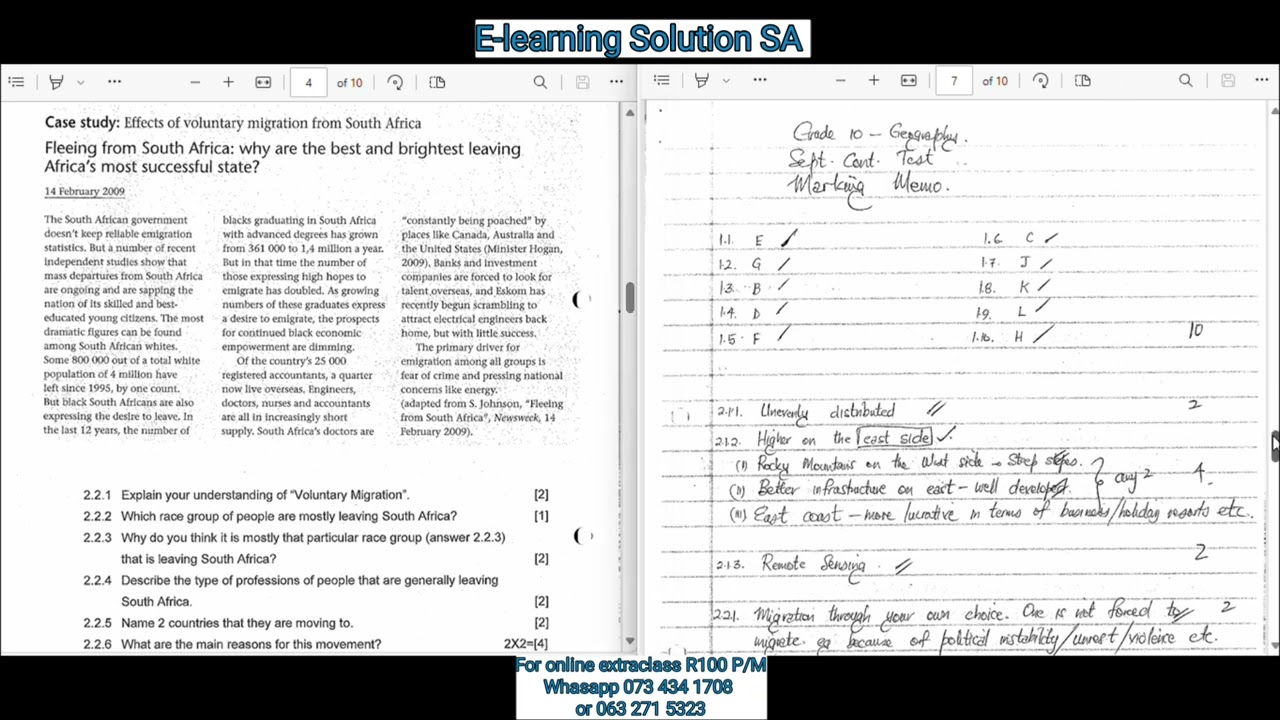 E-learning Solution SA
4 of 10
7 of 10
Case study: Effects of voluntary migration from South Africa
Fleeing from South Africa: why are the best and brightest leaving
Africa's most successful state?
14 February 2009
The South African government
doesn't keep reliable emigration
statistics. But a number of recent
independent studies show that
mass departures from South Africa
are ongoing and are sapping the
nation of its skilled and best-
educated young citizens. The most
dramatic figures can be found
among South African whites.
Some 800 000 out of a total white
population of 4 million have
left since 1995, by one count.
But black South Africans are also
expressing the desire to leave. In
the last 12 years, the number of
blacks graduating in South Africa
with advanced degrees has grown
from 361 000 to 1,4 million a year.
But in that time the number of
those expressing high hopes to
emigrate has doubled. As growing
numbers of these graduates express
a desire to emigrate, the prospects
for continued black economic
empowerment are dimming.
Of the country's 25 000
registered accountants, a quarter
now live overseas. Engineers,
doctors, nurses and accountants
are all in increasingly short
supply. South Africa's doctors are
"constantly being poached" by
places like Canada, Australia and
the United States (Minister Hogan,
2009). Banks and investment
companies are forced to look for
talent overseas, and Eskom has
recently begun scrambling to
attract electrical engineers back
home, but with little success.
The primary driver for
emigration among all groups is
fear of crime and pressing national
concerns like energy.
(adapted from S. Johnson, "Fleeing
from South Africa", Newsweek, 14
February 2009).
2.2.1 Explain your understanding of "Voluntary Migration". [2]
2.2.2 Which race group of people are mostly leaving South Africa? [1]
2.2.3 Why do you think it is mostly that particular race group (answer 2.2.3)
that is leaving South Africa? [2]
2.2.4 Describe the type of professions of people that are generally leaving
South Africa. [2]
2.2.5 Name 2 countries that they are moving to. [2]
2.2.6 What are the main reasons for this movement? 2X2=[4]
Grade 10 - Geography.
Sept. Cont. Test
Marking Memo.
1.1. E 1.6. C
1.2. G 1.7. J
1.3. B 1.8. K
1.4. D 1.9. L
1.5 F 1.10. H 10
2.1.1. Unevenly distributed 2
2.1.2. Higher on the east side
(i) Rocky Mountains on the West side → Steep slopes.
(ii) Better infrastructure on east - well developed. any 2 4
(iii) East coast - more lucrative in terms of business/holiday resorts etc.
2.1.3. Remote Sensing. 2
2.2.1. Migration through your own choice. One is not forced to 2
migrate eg because of political instability/unrest/violence etc.
For online extraclass R100 P/M
Whasapp 073 434 1708
or 063 271 5323